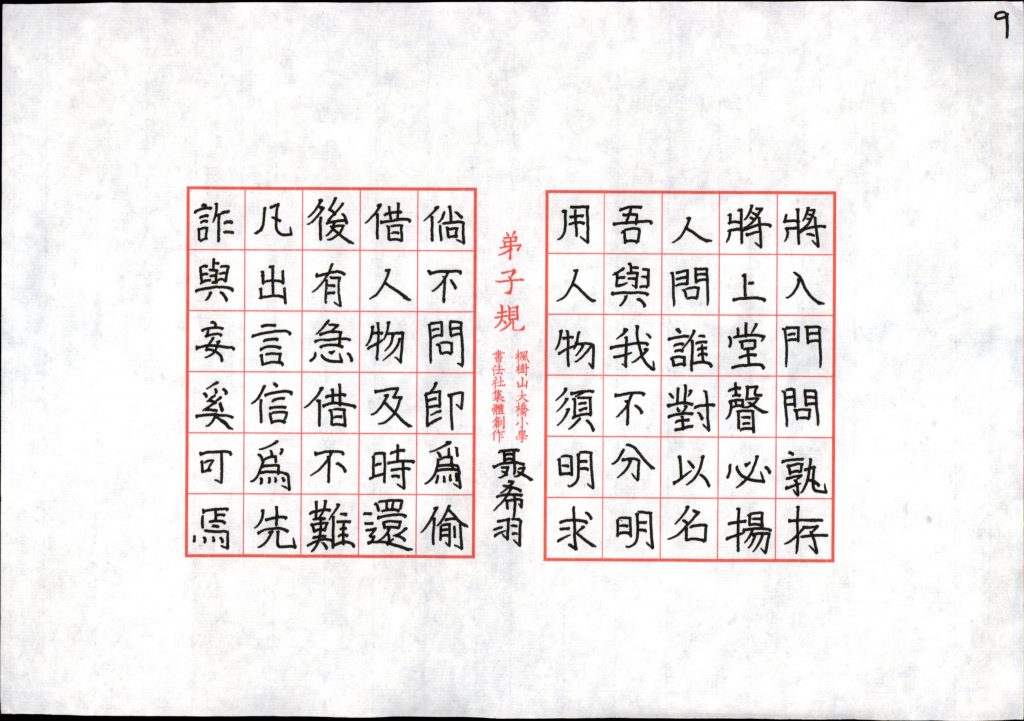 9
將入門問孰存
將上堂聲必揚
人問誰對以名
吾與我不分明
用人物須明求
弟子規
楓樹山大橋小學
書法社集體創作
聶希羽
倘不問即爲偷
借人物及時還
後有急借不難
凡出言信爲先
詐與妄奚可焉